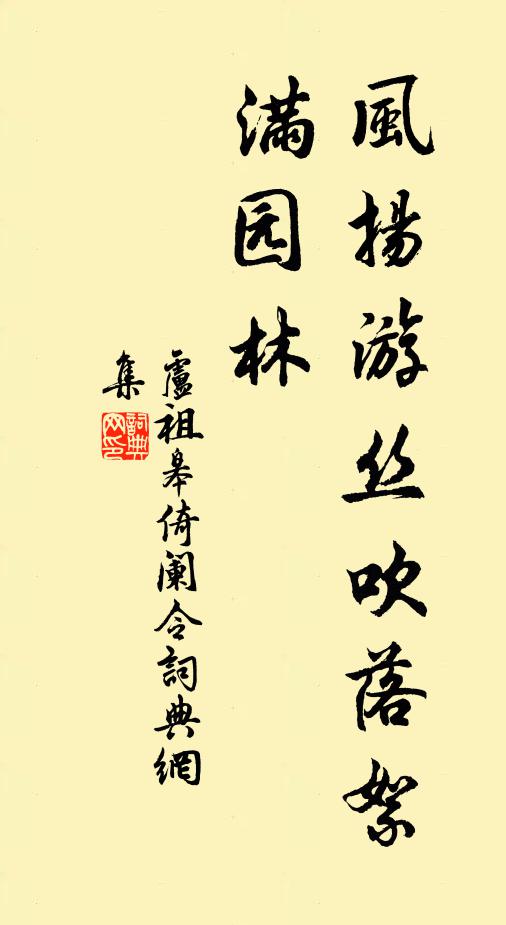 風揚游丝吹落絮
满园林
盧祖皋倚闌令詞典網
集
詞典
网印